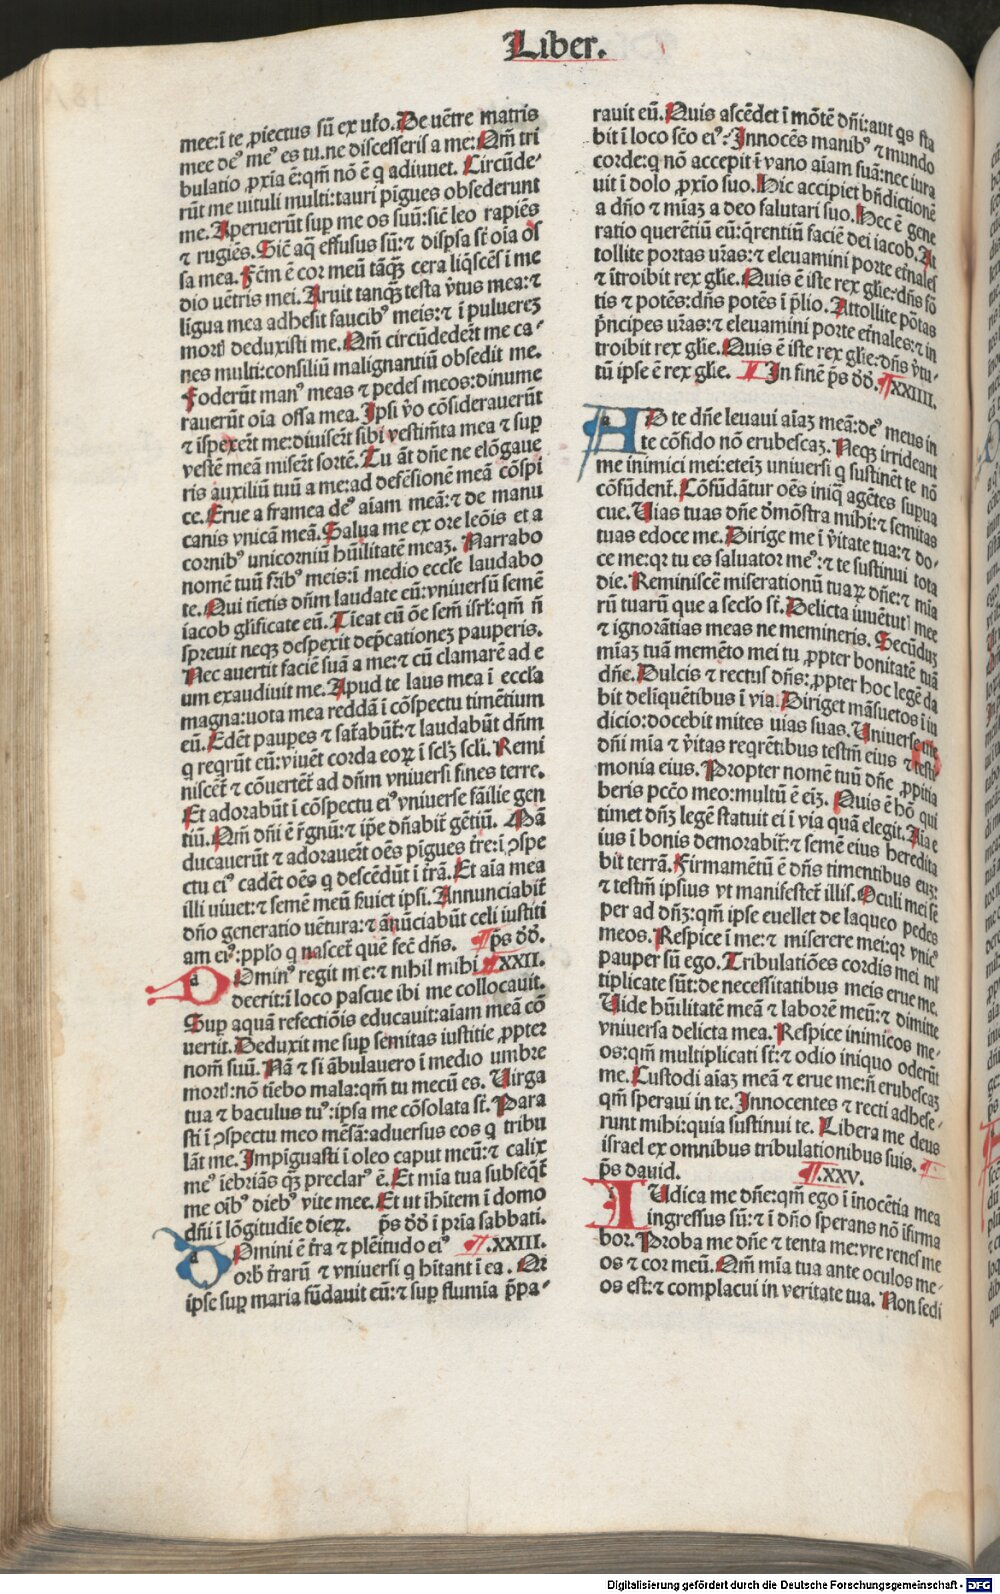 Liber.
mee:ī te ꝓiectus sū ex vƚo. De vētre matris
mee deꝰ meꝰ es tu. ne discesseris a me: Qm̄ tri
bulatio ꝓxīa ē: qm̄ nō ē q adiuuet. Circūde-
rūt me vituli multi: tauri pīgues obsederunt
me. Aperuerūt suꝑ me os suū: sic̄ leo rapiēs
⁊ rugiēs. Sic̄ aq̄ effusus sū: ⁊ disꝑsa st̄ oīa os̄
sa mea. Fc̄m ē cor meū tāqꝫ cera liq̄scēs ī me
dio vētris mei. Aruit tanqꝫ testa v̄tus mea: ⁊
līgua mea adhesit faucibꝰ meis: ⁊ ī puluereꝫ
mortꝭ deduxisti me. Qm̄ circūdeder̄t me ca-
nes multi: consiliū malignantiū obsedit me.
Foderūt manꝰ meas ⁊ pedes meos: dinume
rauerūt oīa ossa mea. Ipsi v̄o cōsiderauerūt
⁊ īspexer̄t me: diuiser̄t sibi vestim̄ta mea ⁊ suꝑ
vestē meā miser̄t sortē. Tu āt dn̄e ne elōgaue
ris auxiliū tuū a me: ad defēsionē meā cōspi
ce. Erue a framea deꝰ aīam meā: ⁊ de manu
canis vnicā meā. Salua me ex ore leōis et a
cornibꝰ unicorniū hūilitatē meaꝫ. Narrabo
nomē tuū fr̄ibꝰ meis: ī medio eccl̄e laudabo
te. Qui tīetis dn̄m laudate eū: vniuersū semē
iacob gl̄ificate eū. Tīeat eū ōe sem̄ isrl̄: qm̄ n̄
spreuit neqꝫ despexit dep̄cationeꝫ pauperis.
Nec auertit faciē suā a me: ⁊ cū clamarē ad e
um exaudiuit me. Apud te laus mea ī eccl̄a
magna: uota mea reddā ī cōspectu timētium
eū. Edēt pauꝑes ⁊ sat̄abūt̄: ⁊ laudabūt dn̄m
q reqrūt eū: viuēt corda eoꝝ ī sclꝫ scl̄i. Remi
niscēt̄ ⁊ cōuertēt̄ ad dn̄m vniuersi fines terre.
Et adorabūt ī cōspectu eiꝰ vniuerse fāilie gen
tiū. Qm̄ dn̄i ē r̄gnū: ⁊ ip̄e dn̄abit̄ gētiū. Mā
ducauerūt ⁊ adorauer̄t oēs pīgues tr̄e: ī ↄspe
ctu eiꝰ cadēt oēs q descēdūt ī tr̄ā. Et aīa mea
illi viuet: ⁊ semē meū f̄uiet ipsi. Annunciabit̄
dn̄o generatio uētura: ⁊ ān̄ūciabūt celi iustiti
am eiꝰ: pplō q nascet̄ quē fec̄ dn̄s. ¶ p̄s dd̄.
DOminꝰ regit me: ⁊ nihil mihi ¶ XXII.
deerit: ī loco pascue ibi me collocauit.
Suꝑ aquā refectiōis educauit: aīam meā cō
uertit. Deduxit me suꝑ semitas iustitie ꝓpter
nom̄ suū. Nā ⁊ si ābulauero ī medio umbre
mortꝭ: nō tīebo mala: qm̄ tu mecū es. Virga
tua ⁊ baculus tuꝰ: ipsa me cōsolata st̄. Para
sti ī ↄspectu meo mēsā: aduersus eos q tribu
lāt me. Impīguasti ī oleo caput meū: ⁊ calix
meꝰ īebriās qꝫ preclarꝰ ē. Et mīa tua subseq̄t̄
me oībꝰ diebꝰ vite mee. Et ut īhitem ī domo
dn̄i ī lōgitudīe dieꝝ. p̄s dd̄ ī pr̄ia sabbati.
DOmini ē tr̄a ⁊ plēitudo eiꝰ ¶ .XXIII.
orbꝭ tr̄arū ⁊ vniuersi q hītant ī ea. Qr̄
ipse suꝑ maria fūdauit eū: ⁊ suꝑ flumīa p̄pa-
rauit eū. Quis ascēdet ī mōtē dn̄i: aut qs sta
bit ī loco scō eiꝰ: Innocēs manibꝰ ⁊ mundo
corde: q nō accepit ī vano aīam suā: nec iura
uit ī dolo ꝓxīo suo. Hic accipiet bn̄dictionē
a dn̄o ⁊ mīaꝫ a deo salutari suo. Hec ē gene
ratio querētiū eū: q̄rentiū faciē dei iacob. At
tollite portas ur̄as: ⁊ eleuamini porte et̄nales
⁊ ītroibit rex gl̄ie. Quis ē iste rex gl̄ie: dn̄s fō
tis ⁊ potēs: dn̄s potēs ī p̄lio. Attollite pōtas
p̄ncipes ur̄as: ⁊ eleuamini porte et̄nales: ⁊ in
troibit rex gl̄ie. Quis ē iste rex gl̄ie: dn̄s v̄tu-
tū ipse ē rex gl̄ie. ¶ In finē p̄s dd̄. ¶ XXIIII.
AD te dn̄e leuaui aīaꝫ meā: deꝰ meus in
te cōfido nō erubescaꝫ. Neqꝫ irrideant
me inimici mei: eteīꝫ uniuersi q sustinēt te nō
cōfūdent̄. Cōfūdātur oēs iniq̄ agētes supua
cue. Uias tuas dn̄e dm̄ōstra mihi: ⁊ semitas
tuas edoce me. Dirige me ī v̄itate tua: ⁊ do-
ce me: qr tu es saluator meꝰ: ⁊ te sustinui tota
die. Reminiscē miserationū tuaꝝ dn̄e: ⁊ mīa
rū tuarū que a seclo st̄. Delicta iuuētutꝭ mee
⁊ ignorātias meas ne memineris. Secūduꝫ
mīaꝫ tuā memēto mei tu ꝓpter bonitatē tuā
dn̄e. Dulcis ⁊ rectus dn̄s: ꝓpter hoc legē da
bit delīquētibus ī via. Diriget māsuetos ī iu
dicio: docebit mites uias suas. Uniuerse vie
dn̄i mīa ⁊ v̄itas reqrētibus testm̄ eius ⁊ testi
monia eius. Propter nomē tuū dn̄e ꝓpitia
beris pcc̄o meo: multū ē eīꝫ. Quis ē hō qui
timet dn̄ꝫ legē statuit ei ī via quā elegit. Aīa e
ius ī bonis demorabit̄: ⁊ semē eius heredita
bit terrā. Firmamētū ē dn̄s timentibus euꝫ:
⁊ testm̄ ipsius vt manifestet̄ illis. Oculi mei sē
per ad dn̄ꝫ: qm̄ ipse euellet de laqueo pedes
meos. Respice ī me: ⁊ miserere mei: qr vnicꝰ
pauper sū ego. Tribulatiōes cordis mei ml̄
tiplicate sūt: de necessitatibus meis erue me.
Uide hūilitatē meā ⁊ laborē meū: ⁊ dimitte
vniuersa delicta mea. Respice inimicos me-
os: qm̄ multiplicati st̄: ⁊ odio iniquo oderūt
me. Custodi aīaꝫ meā ⁊ erue me: n̄ erubescaꝫ
qm̄ speraui in te. Innocentes ⁊ recti adhese-
runt mihi: quia sustinui te. Libera me deus
israel ex omnibus tribulationibus suis. ¶
p̄s dauid. ¶ .XXV.
IUdica me dn̄e: qm̄ ego ī inocētia mea
ingressus sū: ⁊ ī dn̄o sperans nō īfirma
bor. Proba me dn̄e ⁊ tenta me: vre renes me
os ⁊ cor meū. Qm̄ mīa tua ante oculos me-
os est: ⁊ complacui in veritate tua. Non sedi
Digitalisierung gefördert durch die Deutsche Forschungsgemeinschaft - DFG